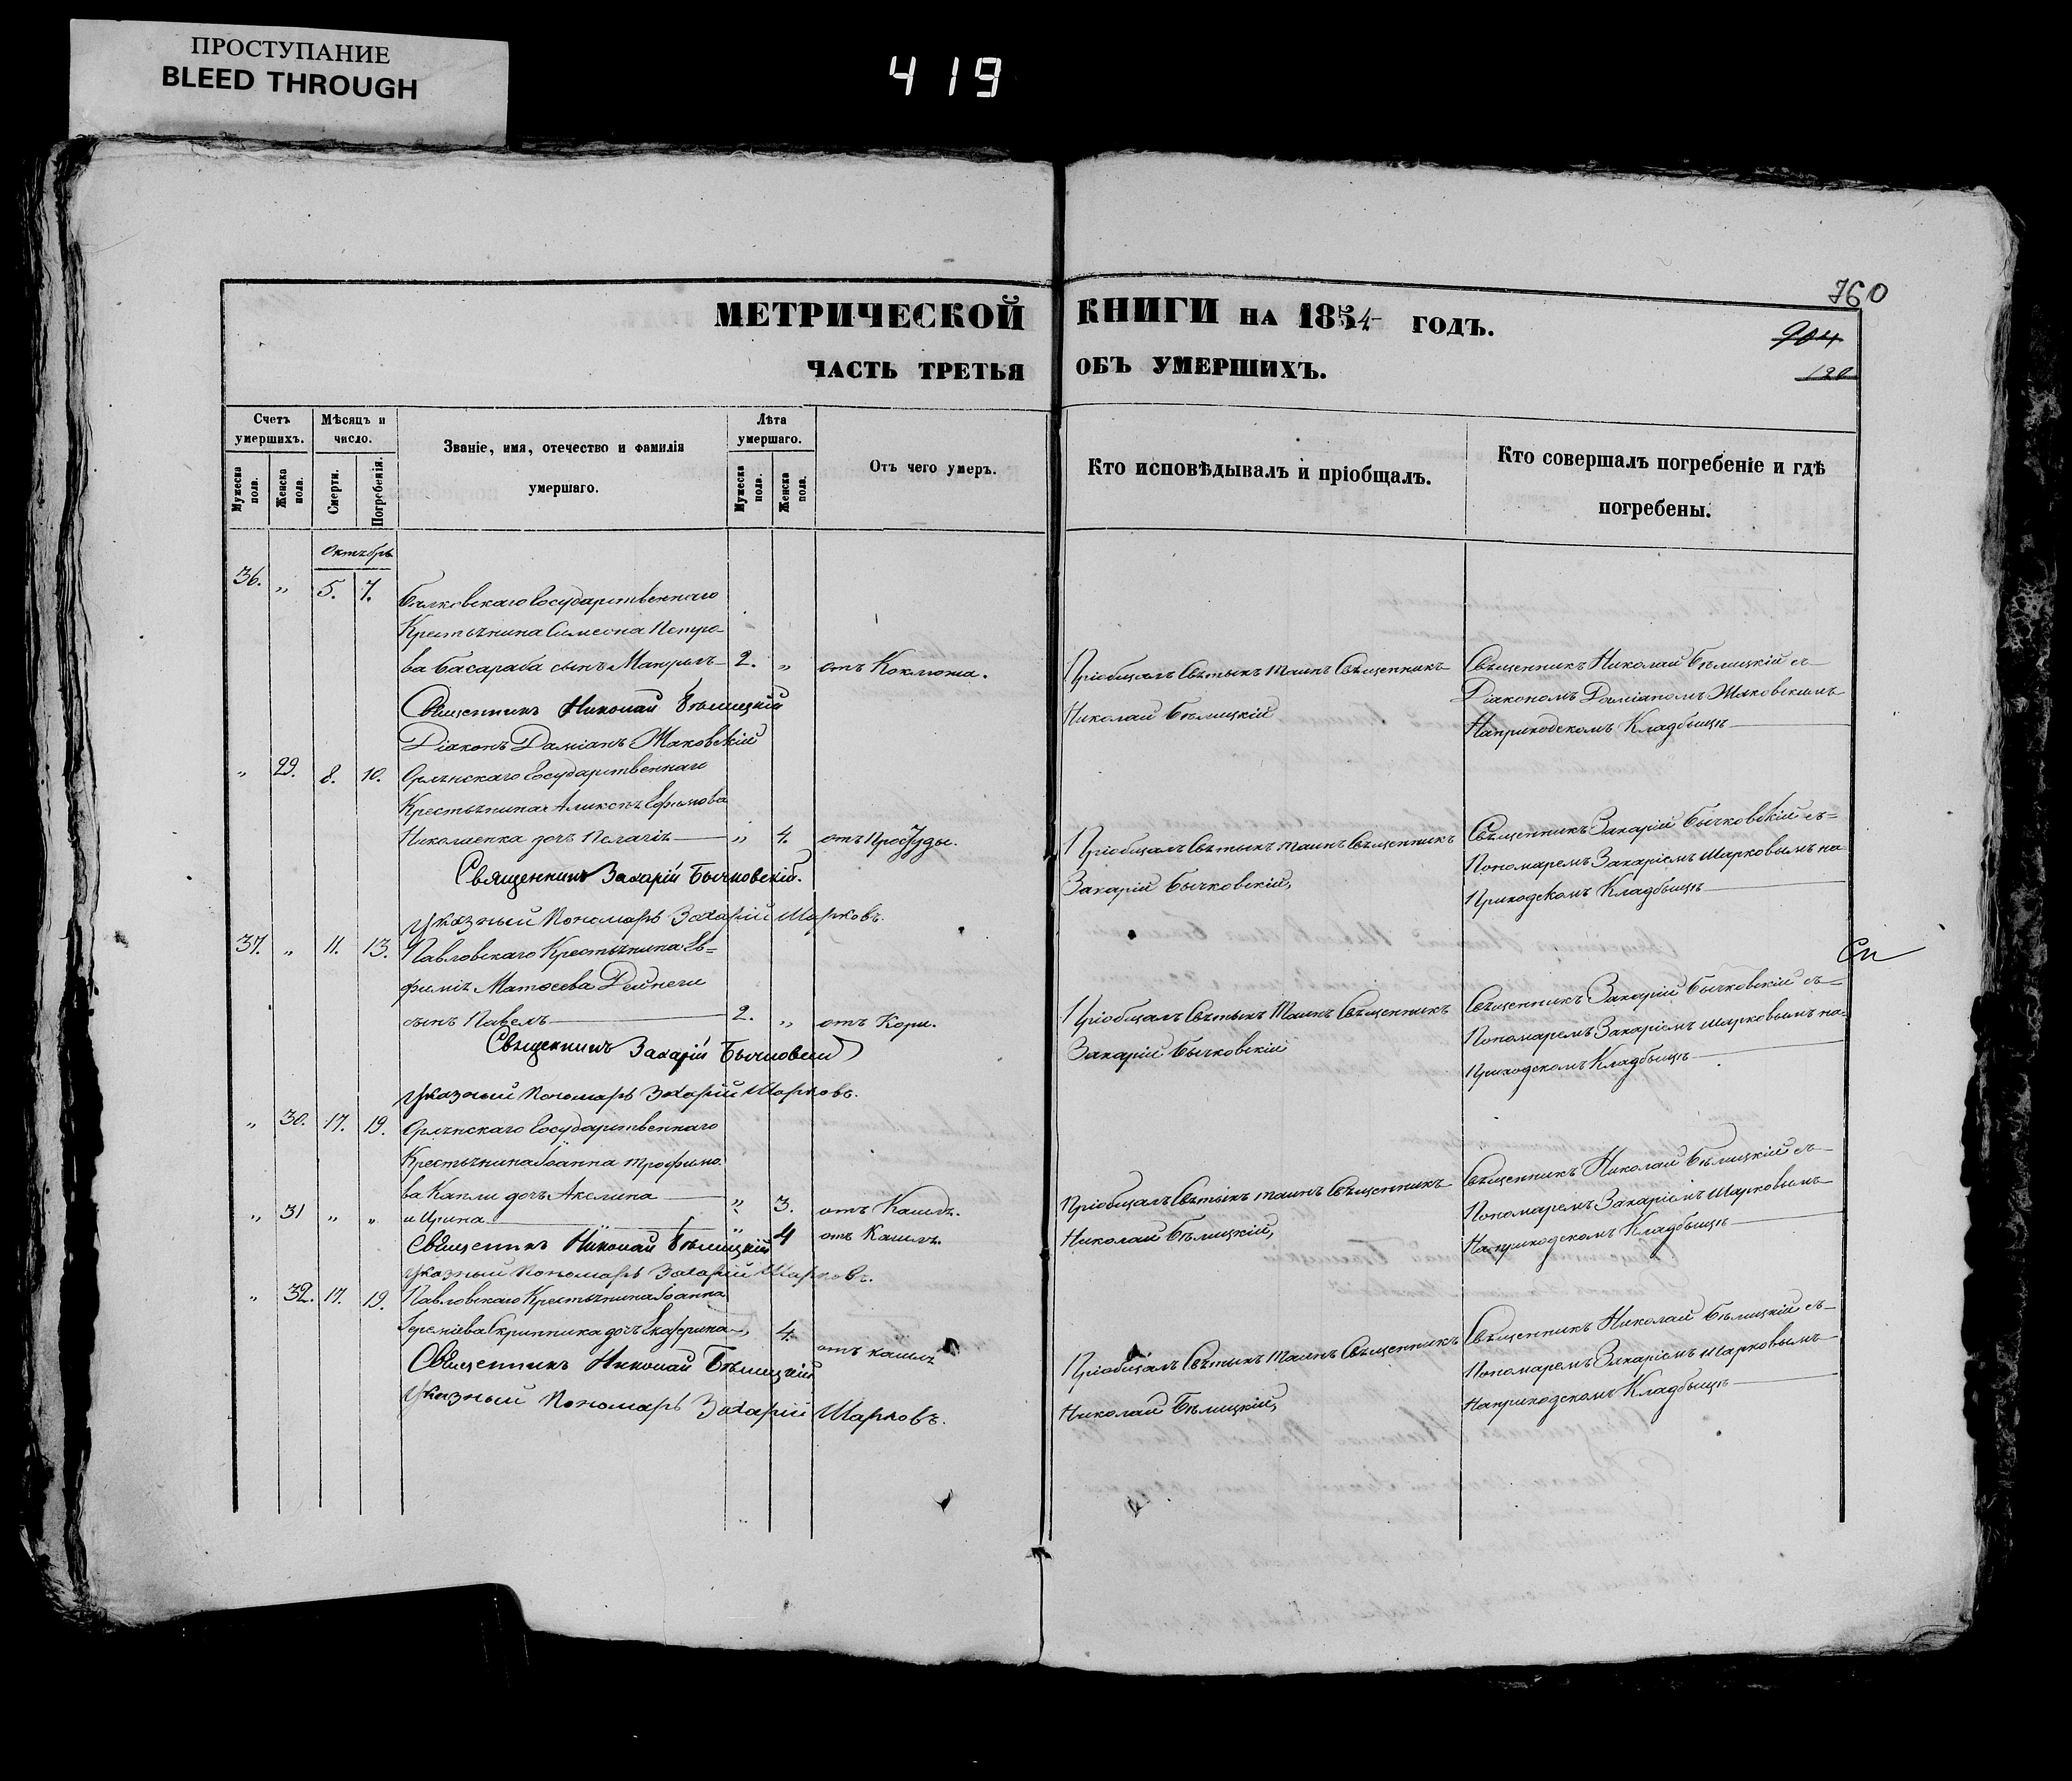 ПРОСТУПАНИЕ
BLEED THROUGH
419
760
МЕТРИЧЕСКОЙ КНИГИ НА 1854 ГОДЪ.
904
120
ЧАСТЬ ТРЕТЬЯ ОБЪ УМЕРШИХЪ.
Счетъ умершихъ.
Мужеска пола.
Женска пола.
Мѣсяцъ и число.
Смерти.
Погребенія.
Званіе, имя, отечество и фамилія умершаго.
Лѣта умершаго.
Мужеска пола.
Женска пола.
Отъ чего умеръ.
Кто исповѣдывалъ и пріобщалъ.
Кто совершалъ погребеніе и гдѣ погребены.
Октябрь
36. „ 5. 7. Государственнаго
Крестьянина Симеона Петро-
ва Басараба сынъ 2. „ отъ Коклюша.
Пріобщалъ Святыхъ Таинъ Священникъ
Николай Бѣлицкій
Священникъ Николай Бѣлицкій съ
Діакономъ Даміаномъ Маковскимъ
На приходскомъ Кладбищѣ
Священникъ Николай Бѣлицкій
Діаконъ Даміанъ Маковскій
„ 29. 8. 10. Орлянскаго Государственнаго
Крестьянина Алексія Ефимова
Николаенка дочь Пелагія „ 4. отъ Простуды.
Пріобщалъ Святыхъ Таинъ Священникъ
Захарій Бычковскій,
Священникъ Захарій Бычковскій съ
Пономаремъ Захаріемъ Шарковымъ на
Приходскомъ Кладбищѣ
Священникъ Захарій Бычковскій.
Указный Пономарь Захарій Шарковъ.
37. „ 11. 13. Павловскаго Крестьянина Ев-
фимія Матвеева Дейнеги
сынъ Павелъ 2. „ отъ Кори.
Пріобщалъ Святыхъ Таинъ Священникъ
Захарій Бычковскій
Священникъ Захарій Бычковскій съ
Пономаремъ Захаріемъ Шарковымъ на
Приходскомъ Кладбищѣ
Священникъ Захарій Бычковскій
Указный Пономарь Захарій Шарковъ.
„ 30. 17. 19. Орлянскаго Государственнаго
Крестьянина Іоанна Трофимо-
ва Капли дочь Акелина „ 3. отъ Кашля.
„ 31 „ „ и Ирина „ 4 отъ Кашля.
Пріобщалъ Святыхъ Таинъ Священникъ
Николай Бѣлицкій,
Священникъ Николай Бѣлицкій съ
Пономаремъ Захаріемъ Шарковымъ
На приходскомъ Кладбищѣ
Священникъ Николай Бѣлицкій
Указный Пономарь Захарій Шарковъ.
„ 32. 17. 19. Павловскаго Крестьянина Іоанна
Скрипника дочь Екатерина „ 4. отъ кашля
Пріобщалъ Святыхъ Таинъ Священникъ
Николай Бѣлицкій,
Священникъ Николай Бѣлицкій съ
Пономаремъ Захаріемъ Шарковымъ
На приходскомъ Кладбищѣ
Священникъ Николай Бѣлицкій
Указный Пономарь Захарій Шарковъ.